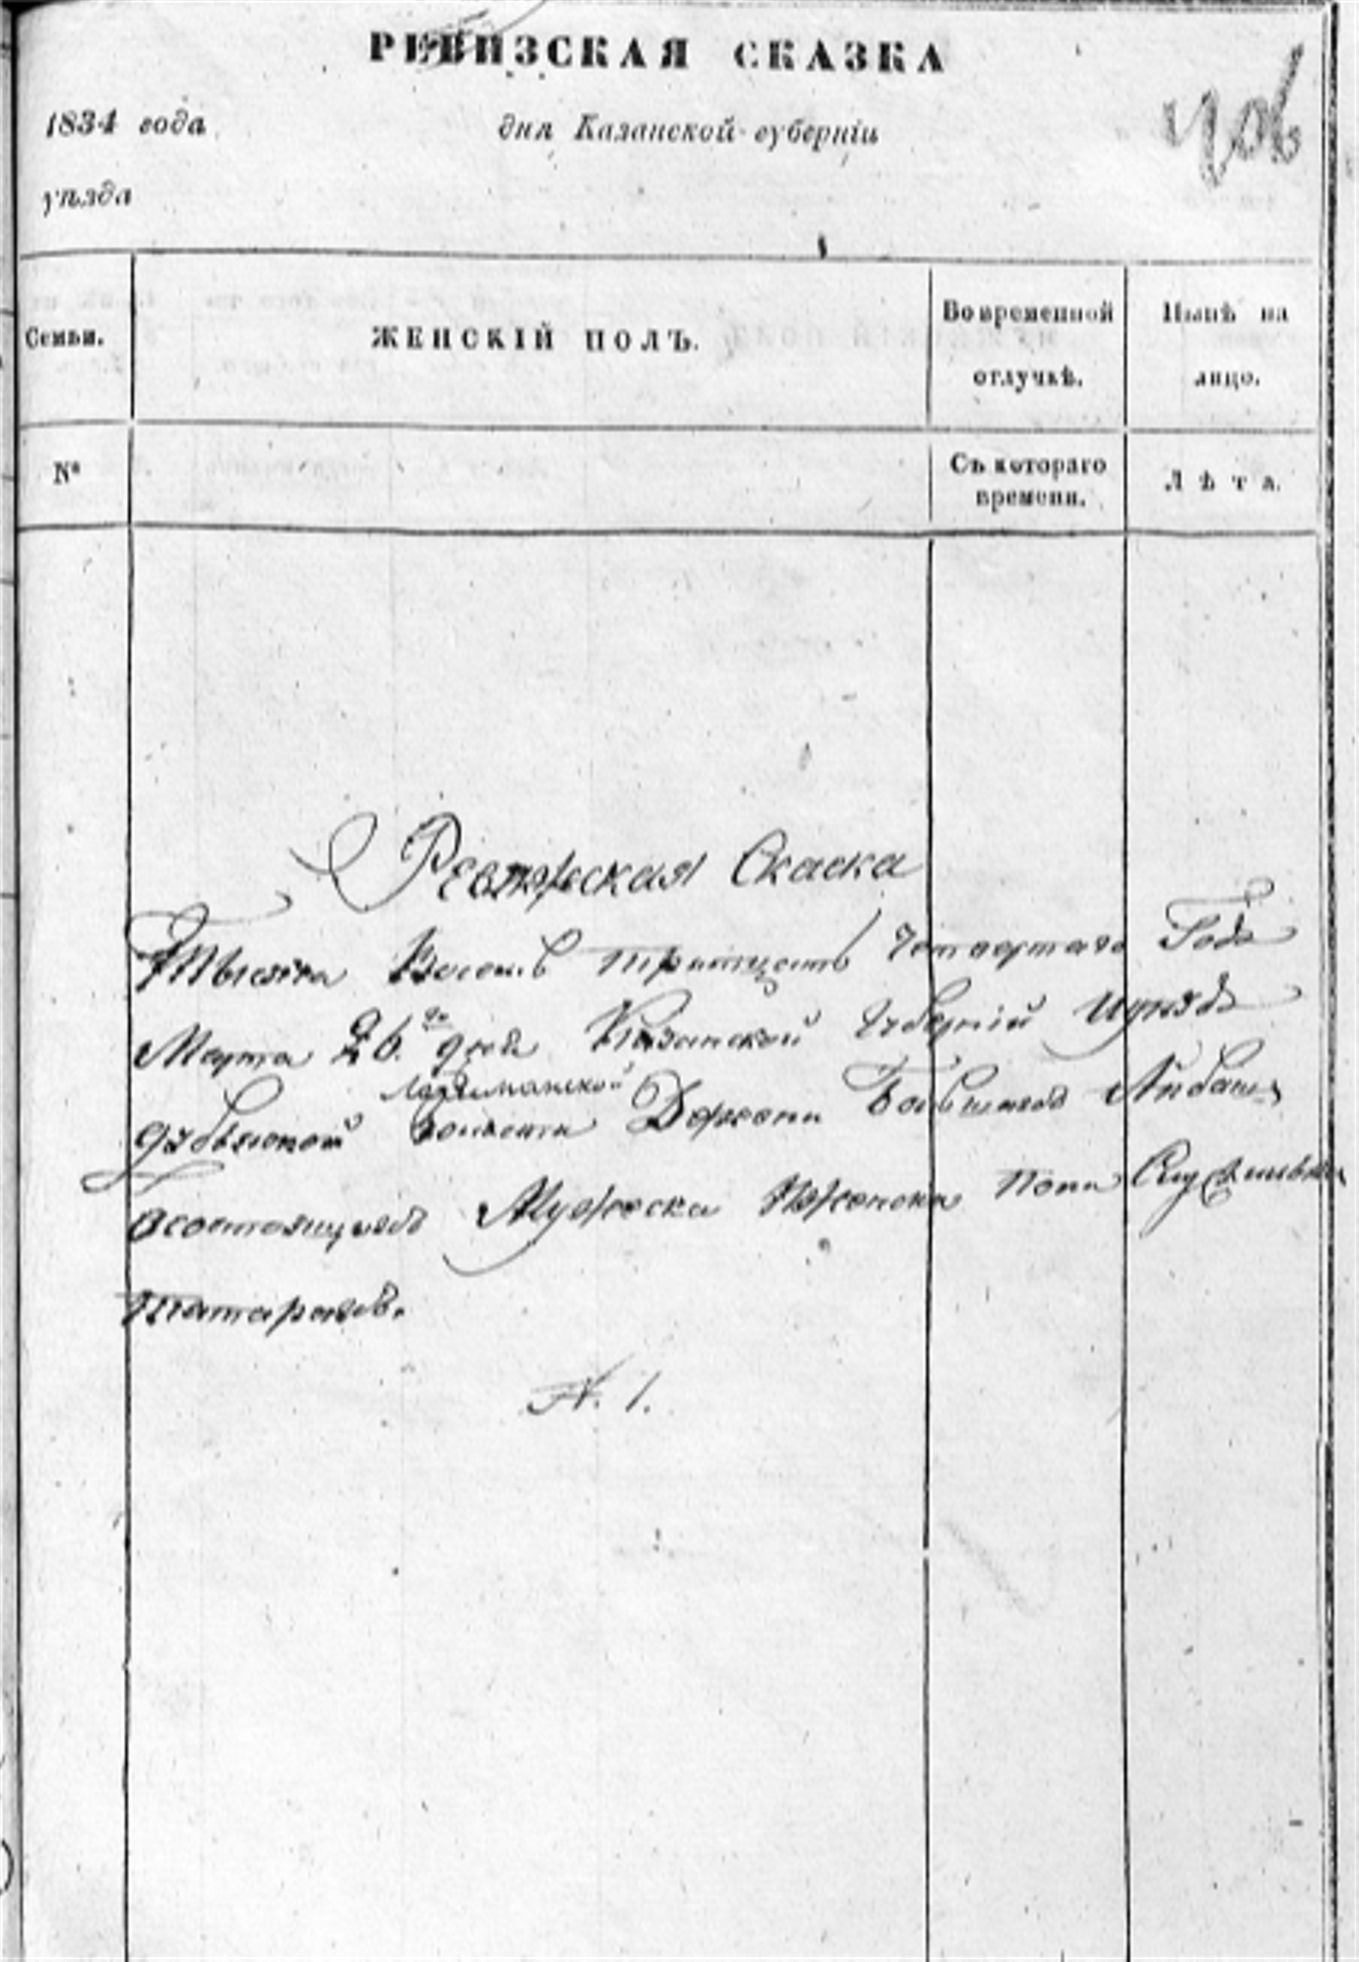 РЕВИЗСКАЯ СКАЗКА
1834 года дня Казанской губерніи
уѣзда
Семьи. ЖЕНСКІЙ ПОЛЪ. Во временной отлучкѣ. Нынѣ на лицо.
№ Съ котораго времени. Лѣта.
Ревижская Скаска
Тысяча Восемь тритцать четвертаго Года
Марта 26. го дня Казанской Губерній
Лашманской
волости Айбаш
осостоящихъ Мужеска Иженска пола
татарахъ.
№. 1.